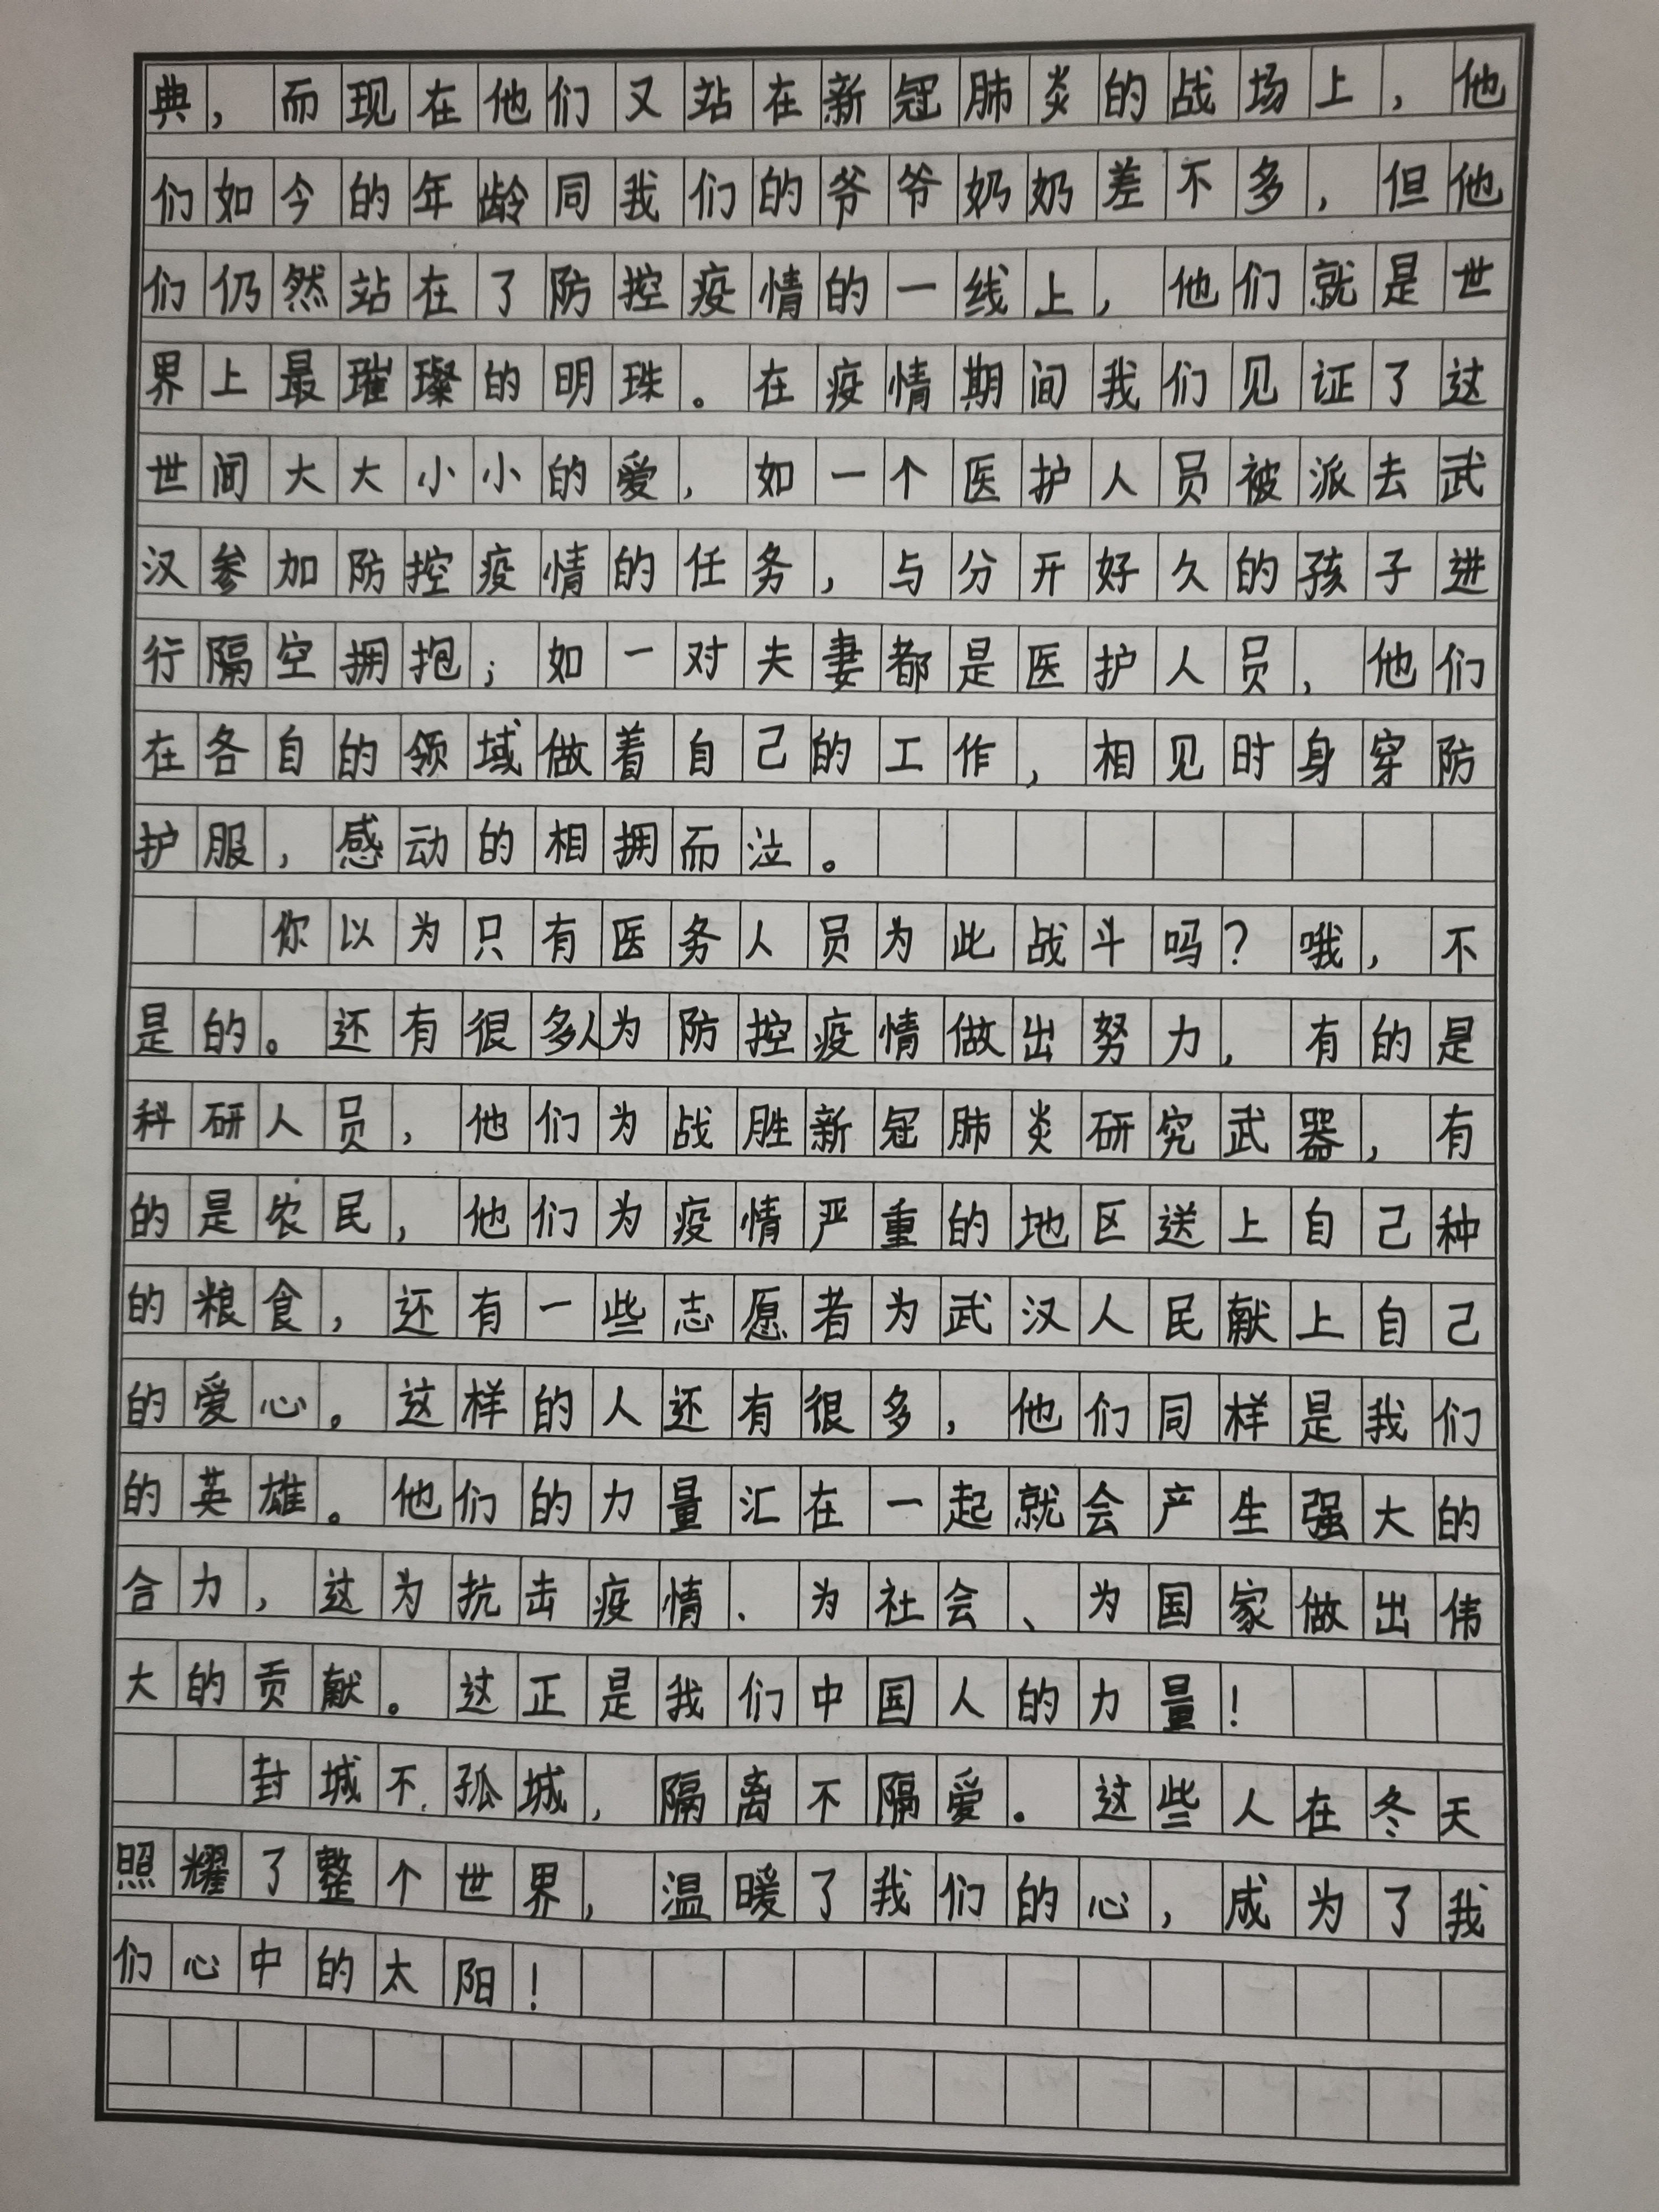 典，而现在他们又站在新冠肺炎的战场上，他
们如今的年龄同我们的爷爷奶奶差不多，但他
们仍然站在了防控疫情的一线上，他们就是世
界上最璀璨的明珠。在疫情期间我们见证了这
世间大大小小的爱，如一个医护人员被派去武
汉参加防控疫情的任务，与分开好久的孩子进
行隔空拥抱；如一对夫妻都是医护人员，他们
在各自的领域做着自己的工作，相见时身穿防
护服，感动的相拥而泣。
你以为只有医务人员为此战斗吗？哦，不
是的。还有很多人为防控疫情做出努力，有的是
科研人员，他们为战胜新冠肺炎研究武器，有
的是农民，他们为疫情严重的地区送上自己种
的粮食，还有一些志愿者为武汉人民献上自己
的爱心。这样的人还有很多，他们同样是我们
的英雄。他们的力量汇在一起就会产生强大的
合力，这为抗击疫情、为社会、为国家做出伟
大的贡献。这正是我们中国人的力量！
封城不孤城，隔离不隔爱。这些人在冬天
照耀了整个世界，温暖了我们的心，成为了我
们心中的太阳！